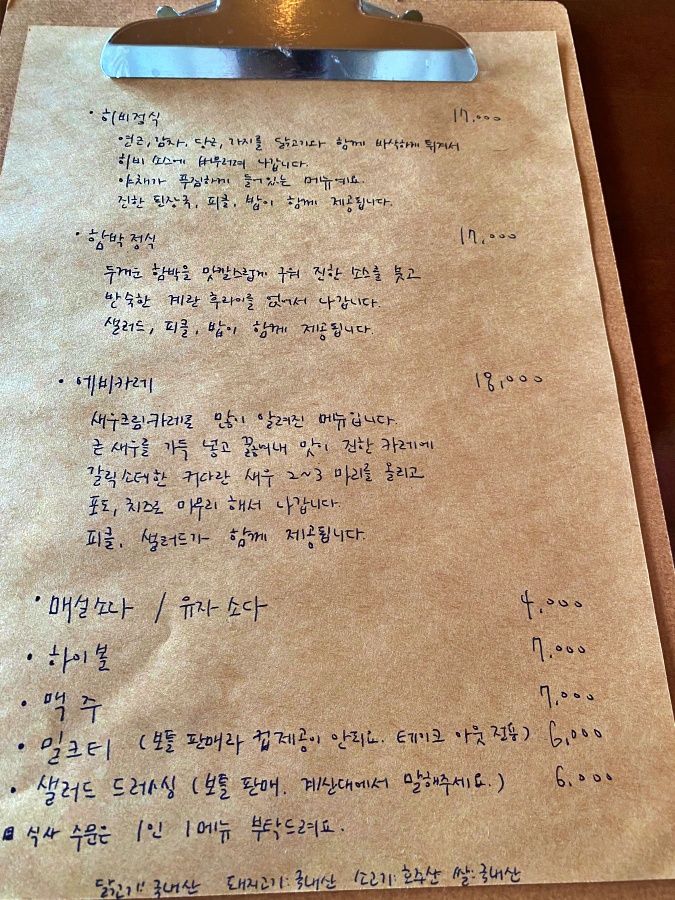 · 히비정식 17,000
연근, 감자, 당근, 가지를 닭고기와 함께 바삭하게 튀겨서
히비 소스에 버무려져 나갑니다.
야채가 푸짐하게 들어있는 메뉴예요.
진한 된장국, 피클, 밥이 함께 제공됩니다.
· 함박 정식 17,000
두꺼운 함박을 맛깔스럽게 구워 진한 소스를 붓고
반숙한 계란 후라이를 얹어서 나갑니다.
샐러드, 피클, 밥이 함께 제공됩니다.
· 에비카레 18,000
새우크림카레로 많이 알려진 메뉴입니다.
큰 새우를 가득 넣고 끓여내 맛이 진한 카레에
갈릭소테한 커다란 새우 2~3 마리를 올리고
포도, 치즈로 마무리 해서 나갑니다.
피클, 샐러드가 함께 제공됩니다.
· 매실소다 / 유자소다 4,000
· 하이볼 7,000
· 맥주 7,000
· 밀크티 (보틀 판매라 컵제공이 안되요. 테이크 아웃 전용) 6,000
· 샐러드 드레싱 (보틀 판매. 계산대에서 말해주세요.) 6,000
식사 주문은 1인 1메뉴 부탁드려요.
닭고기: 국내산 돼지고기: 국내산 소고기: 호주산 쌀: 국내산